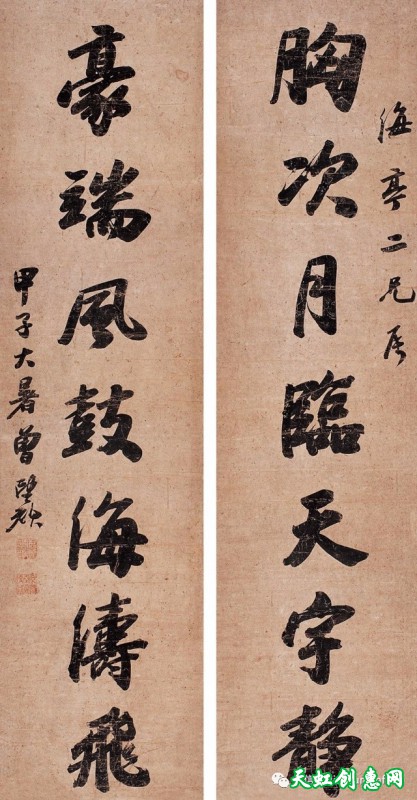 海亭二兄属
胸次月臨天宇静
豪端風鼓海濤飛
甲子大暑曾望顔
天虹创意网